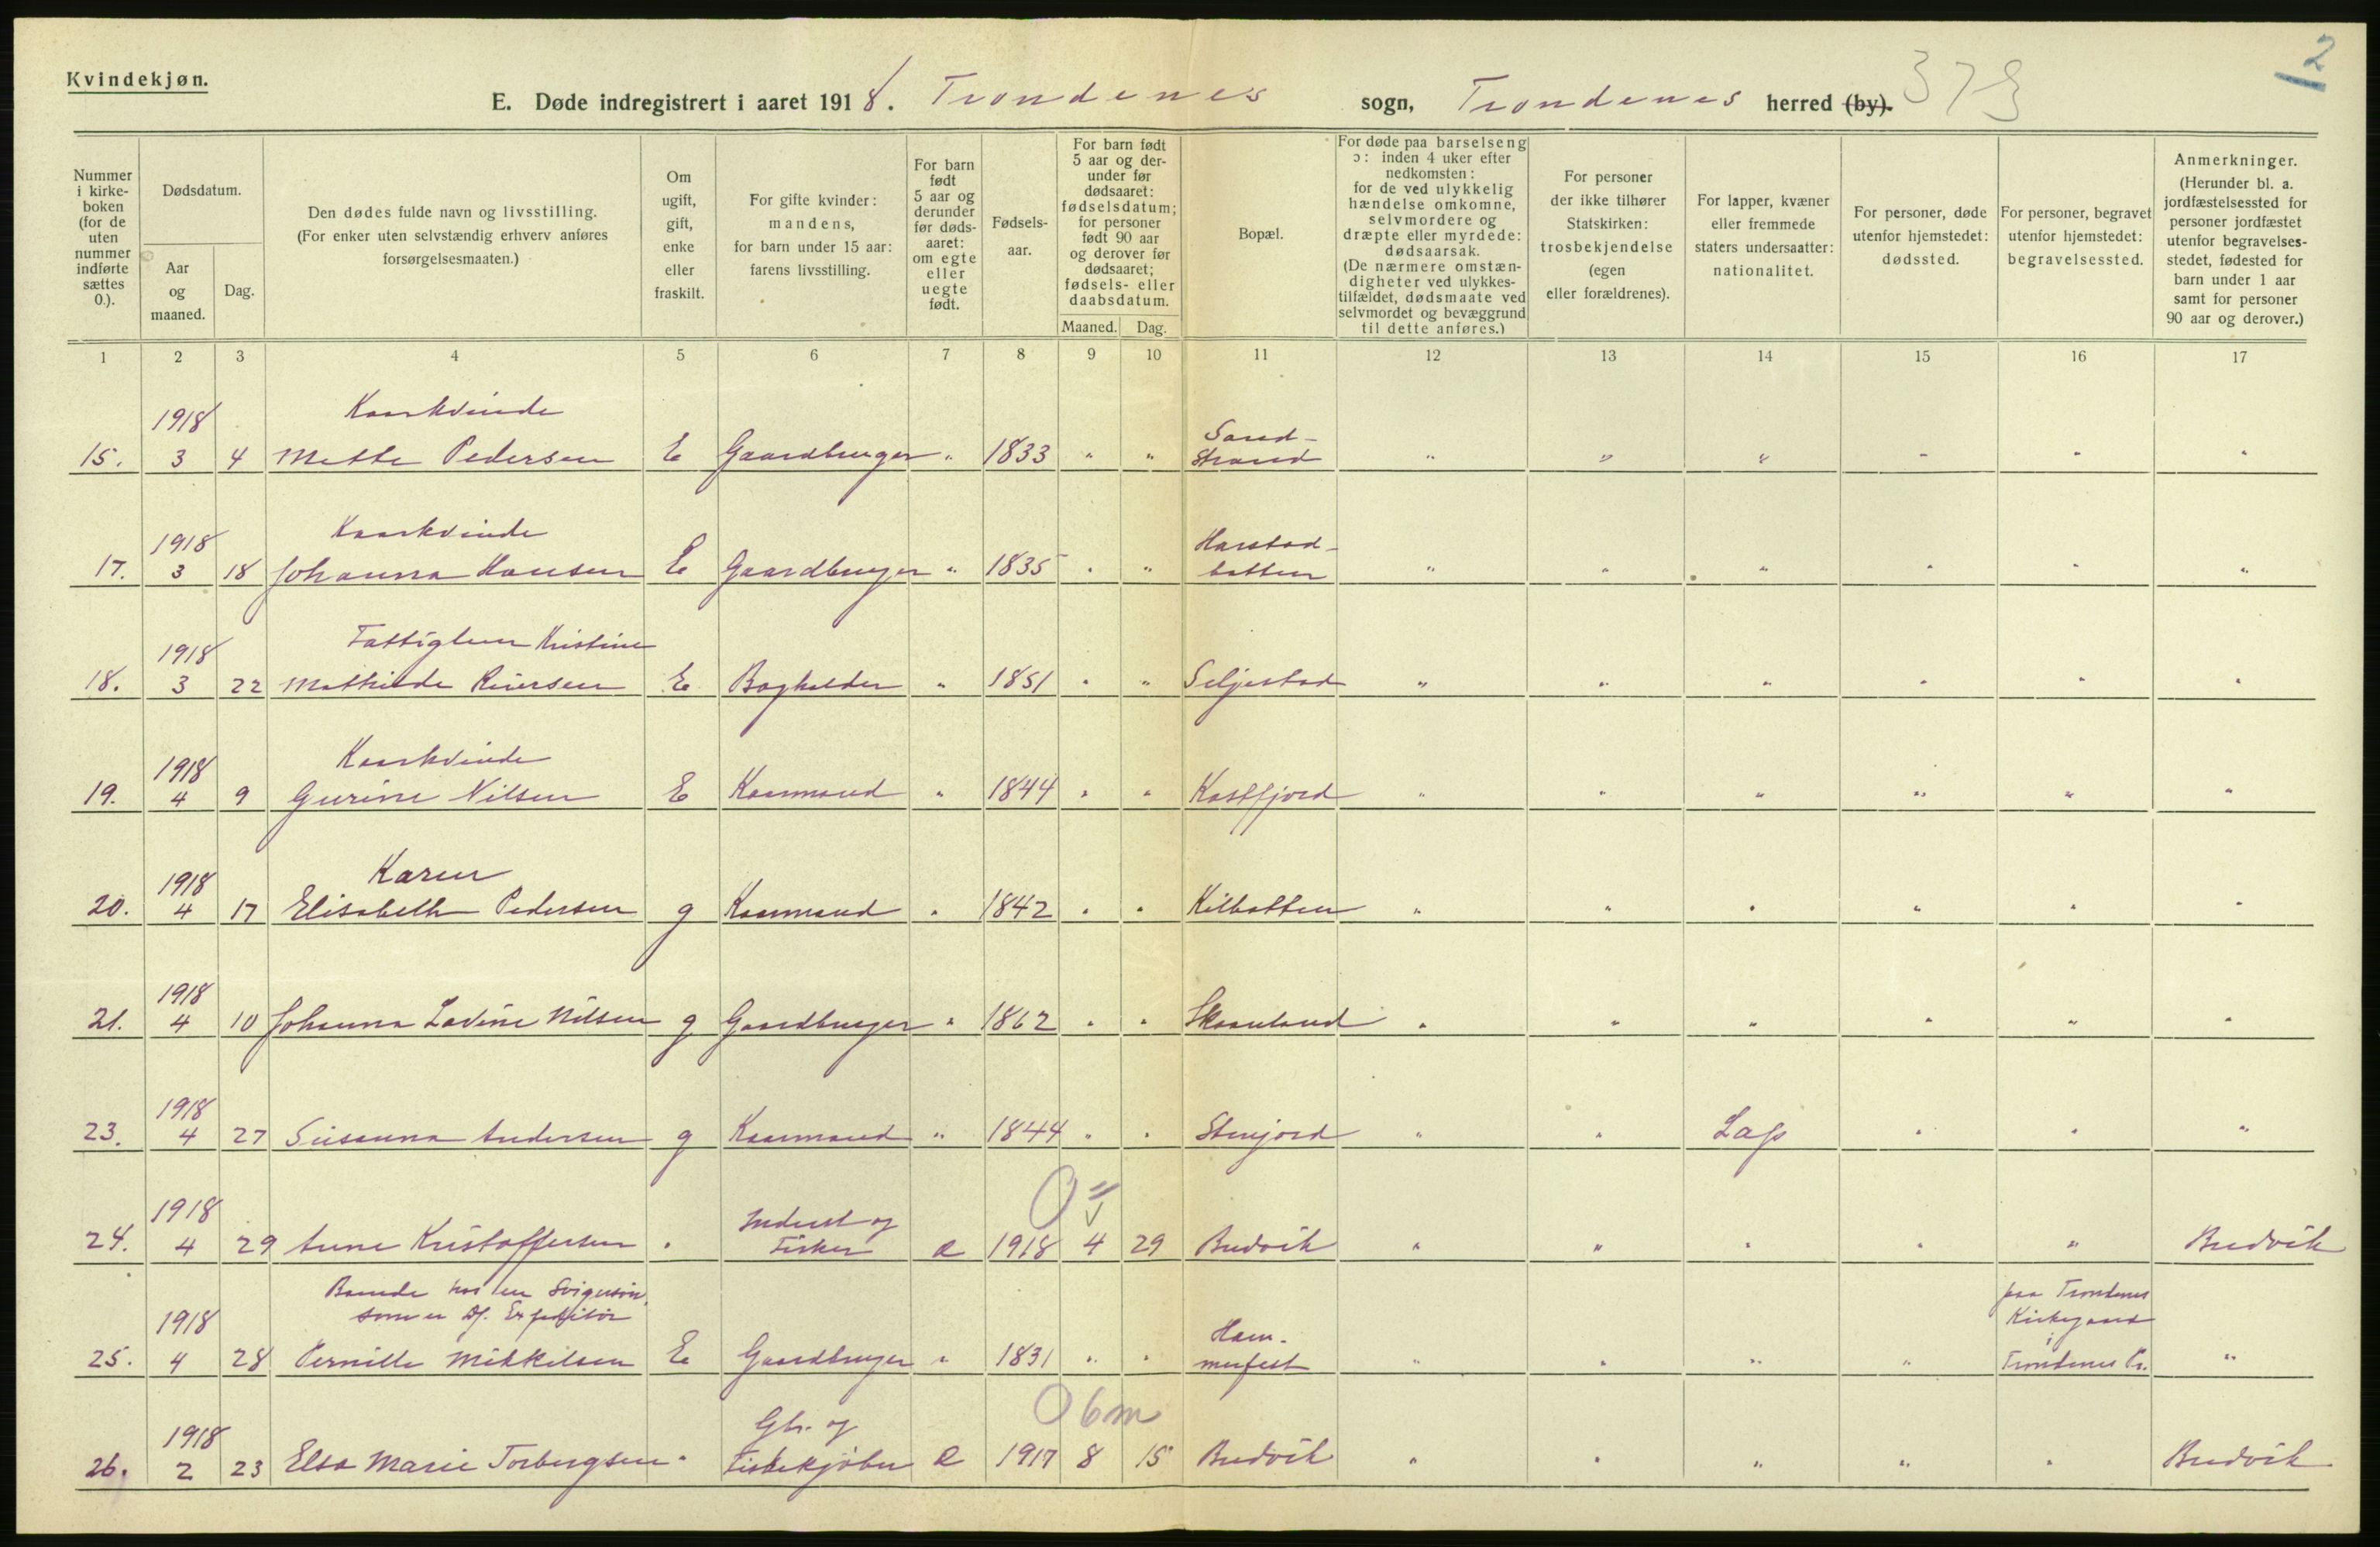 Kvindekjøn.
2
E. Døde indregistrert i aaret 1918. Trondenes sogn, Trondenes herred (by). 373
Nummer i kirkeboken (for de uten nummer indførte sættes 0.).
Dødsdatum.
Aar og maaned.
Dag.
Den dødes fulde navn og livsstilling. (For enker uten selvstændig erhverv anføres forsørgelsesmaaten.)
Om ugift, gift, enke eller fraskilt.
For gifte kvinder: mandens, for barn under 15 aar: farens livsstilling.
For barn født 5 aar og derunder før dødsaaret: om egte eller uegte født.
Fødselsaar.
For barn født 5 aar og derunder før dødsaaret: fødselsdatum; for personer født 90 aar og derover før dødsaaret; fødsels- eller daabsdatum.
Maaned.
Dag.
Bopæl.
For døde paa barselseng ɔ: inden 4 uker efter nedkomsten: for de ved ulykkelig hændelse omkomne, selvmordere og dræpte eller myrdede: dødsaarsak. (De nærmere omstændigheter ved ulykkestilfældet, dødsmaate ved selvmordet og bevæggrund til dette anføres.)
For personer der ikke tilhører Statskirken: trosbekjendelse (egen eller forældrenes).
For lapper, kvæner eller fremmede staters undersaatter: nationalitet.
For personer, døde utenfor hjemstedet: dødssted.
For personer, begravet utenfor hjemstedet: begravelsessted.
Anmerkninger. (Herunder bl. a. jordfæstelsessted for personer jordfæstet utenfor begravelsesstedet, fødested for barn under 1 aar samt for personer 90 aar og derover.)
1 2 3 4 5 6 7 8 9 10 11 12 13 14 15 16 17
1918 Kaarkvinde Sand-
15. 3 4 Mette Pedersen E Gaardbruger " 1833 " " strand " " " " " "
1918 Kaarkvinde Harstad-
17. 3 18 Johanna Hansen E Gaardbruger " 1835 " " botten " " " " " "
1918 Fattiglem Kristine
18. 3 22 Mathilde Reiersen E Bogholder " 1851 " " Seljestad " " " " " "
1918 Kaarkvinde
19. 4 9 Gurine Nilsen E Kaarmand " 1844 " " Kastfjord " " " " " "
1918 Karen
20. 4 17 Elisabeth Pedersen g Kaarmand " 1842 " " Kilbotten " " " " " "
1918
21. 4 10 Johanna Lavine Nilsen g Gaardbruger " 1862 " " Skaanland " " " " " "
1918
23. 4 27 Susanna Andersen g Kaarmand " 1844 " " Stenjord " " Lap " " "
1918 Inderst og 0 "
24. 4 29 Anne Kristoffersen " Fisker e 1918 4 29 Bredvik " " " " " Bredvik
Boende hos sin Svigersøn, paa Trondenes
1918 som er Df. Expeditør Ham- Kirkegaard i
25. 4 28 Pernille Mikkelsen E Gaardbruger " 1831 " " merfest " " " " Trondenes Pr. "
1918 Gbr. og 0 6 m
26. 2 23 Elsa Marie Torbergsen " Fiskekjøber e 1917 8 15 Bredvik " " " " " Bredvik